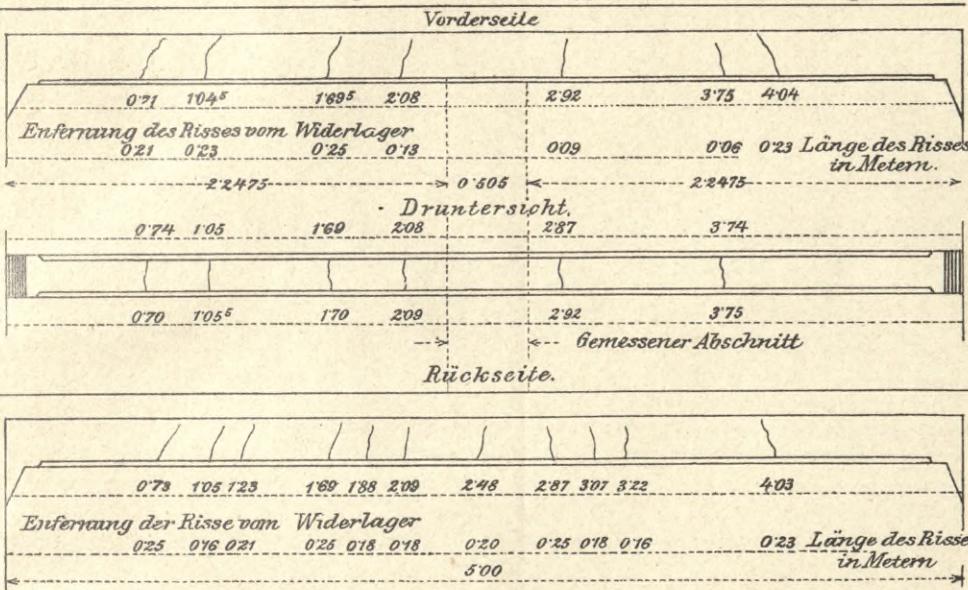 Vorderseite
0·71 1·04⁵ 1·69⁵ 2·08 2·92 3·75 4·04
Enfernung des Risses vom Widerlager
0·21 0·23 0·25 0·13 0·09 0·06 0·23 Länge des Risses
in Metern.
2·2475 0·505 2·2475
Druntersicht.
0·74 1·05 1·69 2·08 2·87 3·74
0·70 1·05⁵ 1·70 2·09 2·92 3·75
Gemessener Abschnitt
Rückseite.
0·73 1·05 1·23 1·69 1·88 2·09 2·48 2·87 3·07 3·22 4·03
Enfernung der Risse vom Widerlager
0·25 0·16 0·21 0·25 0·18 0·18 0·20 0·25 0·18 0·16 0·23 Länge des Risse
in Metern
5·00